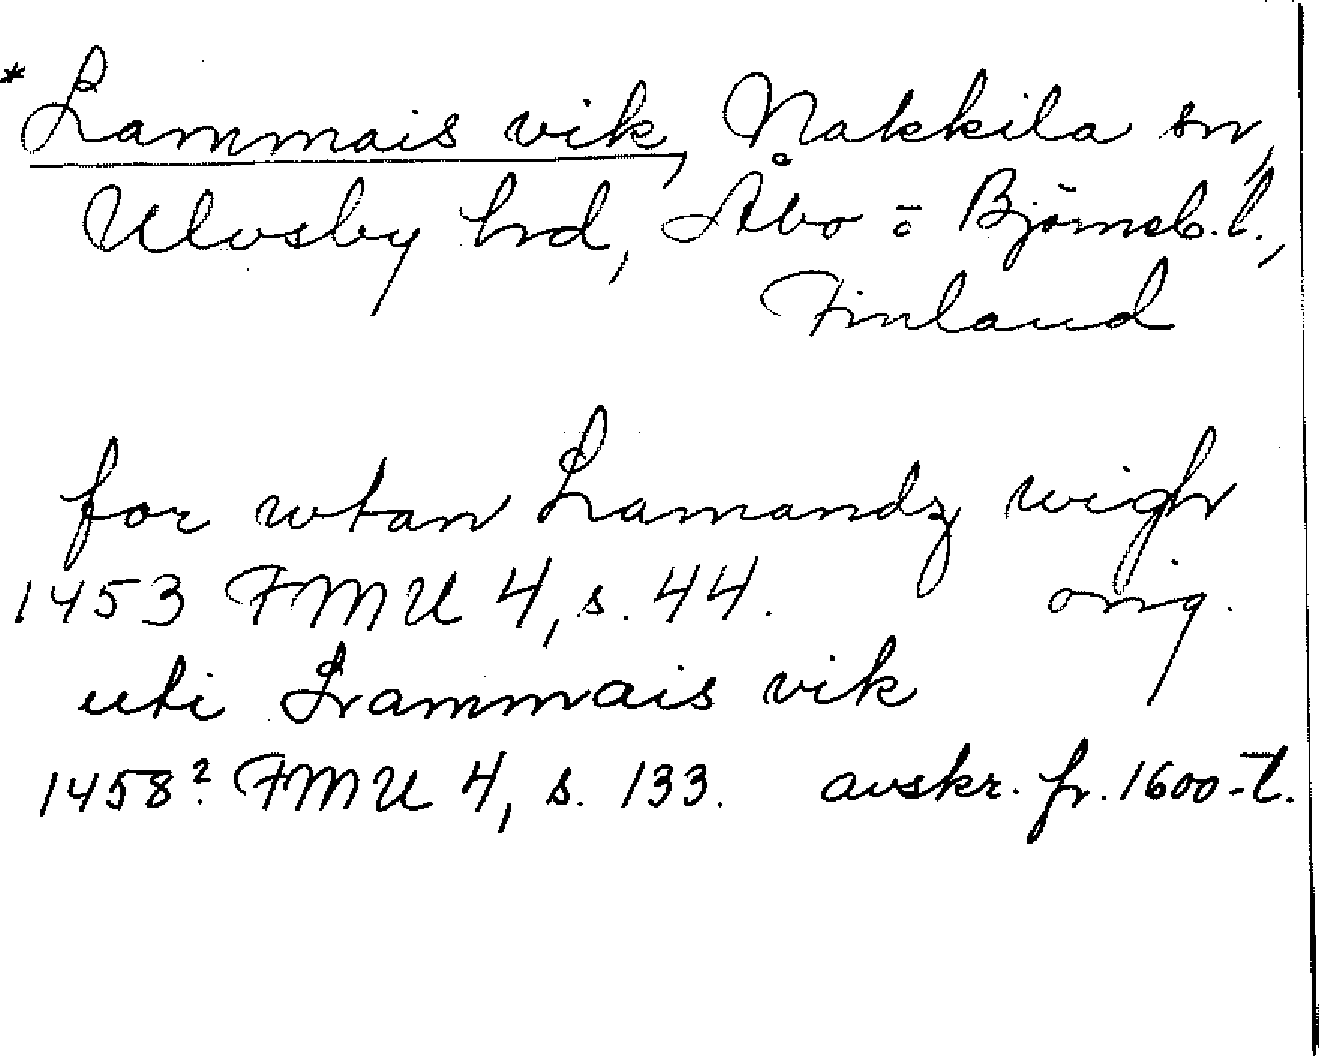 * Lammais vik, Nakkila sn,
Ulvsby hrd, Åbo o Björneb. l.,
Finland
for wtan Lamandz wigh
1453 FMU 4, s. 44. orig.
uti Lammais vik
1458? FMU 4, s. 133. avskr. fr. 1600-t.